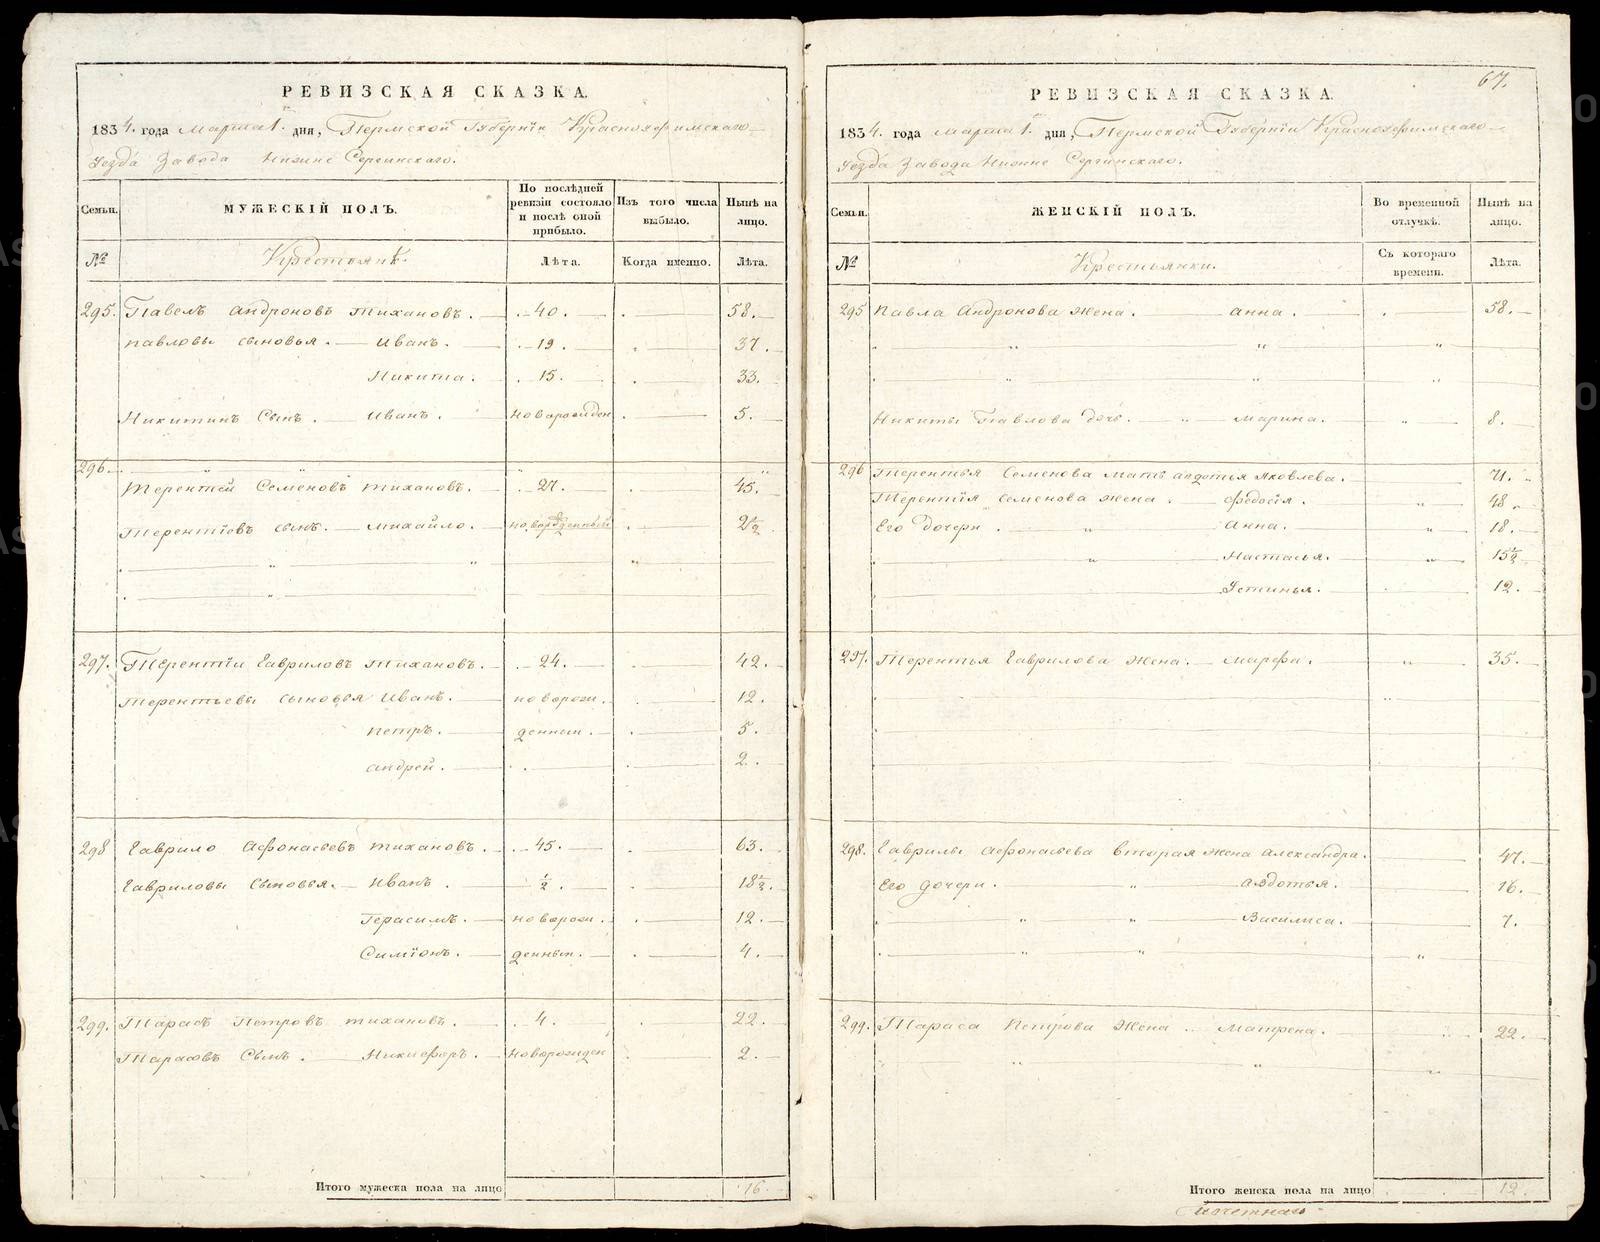 РЕВИЗСКАЯ СКАЗКА.
1834. года Марта 1. дня, Пермской Губернии Красноуфимскаго
уезда Завода Нижне Сергинскаго.
Семьи.
МУЖЕСКІЙ ПОЛЪ.
По послѣдней ревизіи состояло и послѣ оной прибыло.
Изъ того числа выбыло.
Нынѣ на лицо.
№ Крестьянѣ. Лѣта. Когда именно. Лѣта.
295. Павелъ Андроновъ Тихановъ. 40. 58.
Павловы сыновья. Иванъ. 19. 37.
Никита. 15. 33.
Никитинъ Сынъ. Иванъ. новорожден 5.
296.
Терентей Семеновъ Тихановъ. 27. 45.
Терентіовъ сынъ. Михайло. 2 1/2
297. Терентіи Гавриловъ Тихановъ. 24. 42.
Терентьевы сыновья Иванъ. новорож. 12.
Петръ. денныи. 5.
Андрей. 2.
298 Гаврило Афонасьевъ Тихановъ. 45. 63.
Гавриловы Сыновья. Иванъ. 1/2. 18 1/2.
Герасимъ. новорож. 12.
Симіонъ. денныи. 4.
299. Тарасъ Петровъ Тихановъ. 4. 22.
Тарасовъ Сынъ. Никифоръ. новорожден 2.
Итого мужеска пола на лицо 16.
67.
РЕВИЗСКАЯ СКАЗКА.
1834. года Марта 1. дня, Пермской Губерніи Красноуфимскаго
уезда Завода Нижне Сергинскаго.
Семьи.
ЖЕНСКІЙ ПОЛЪ.
Во временной отлучкѣ.
Нынѣ на лицо.
№ Крестьянки. Съ котораго времени. Лѣта.
295 Павла Андронова жена. Анна. 58.
Никиты Павлова дочь. Марина. 8.
296 Терентья Семенова мать Авдотья Яковлева. 71.
Терентія Семенова жена. Федосія. 48.
Его дочери. Анна. 18.
Настасья. 15 1/2
Устинья. 12.
297. Терентья Гаврилова жена. Марфа. 35.
298. Гаврилы Афонасьева вторая жена Александра. 47.
Его дочери. Авдотья. 16.
Василиса. 7.
299. Тараса Петрова жена Матрена. 22.
Итого женска пола на лицо 12.